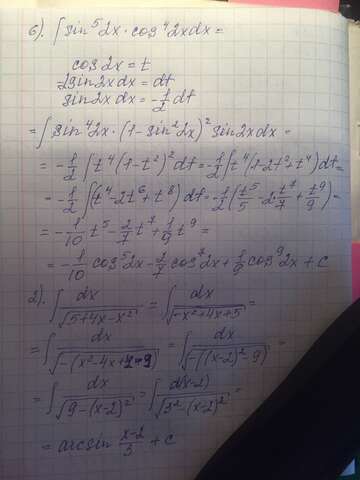 б). ∫sin⁵2x·cos⁴2xdx=
cos2x=t
2sin2xdx=dt
sin2xdx=-1/2dt
=∫sin⁴2x·(1-sin²2x)²sin2xdx=
=-1/2∫t⁴(1-t²)²dt=-1/2∫t⁴(1-2t²+t⁴)dt=
=-1/2∫(t⁴-2t⁶+t⁸)dt=-1/2(t⁵/5-2t⁷/7+t⁹/9)=
=-1/10t⁵-2/7t⁷+1/9t⁹=
=-1/10cos⁵2x-2/7cos⁷2x+1/9cos⁹2x+c
2). ∫dx/√(5+4x-x²)=∫dx/√(-x²+4x+5)=
=∫dx/√(-(x²-4x+4-9)=∫dx/√(-((x-2)²-9)=
=∫dx/√(9-(x-2)²)=∫d(x-2)/√(3²-(x-2)²)=
=arcsin (x-2)/3+c